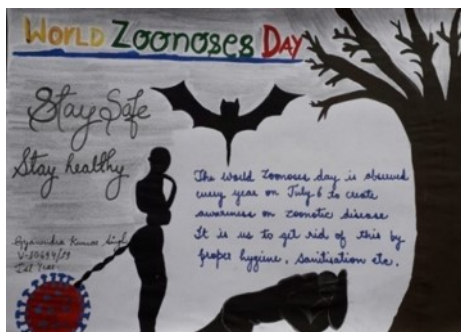 WORLD ZOONOSES DAY
Stay Safe
Stay healthy
The world Zoonoses day is observed
every year on July-6 to create
awareness on zoonotic disease
It is us to get rid of this by
proper hygiene, sanitisation etc.
Kumar Singh